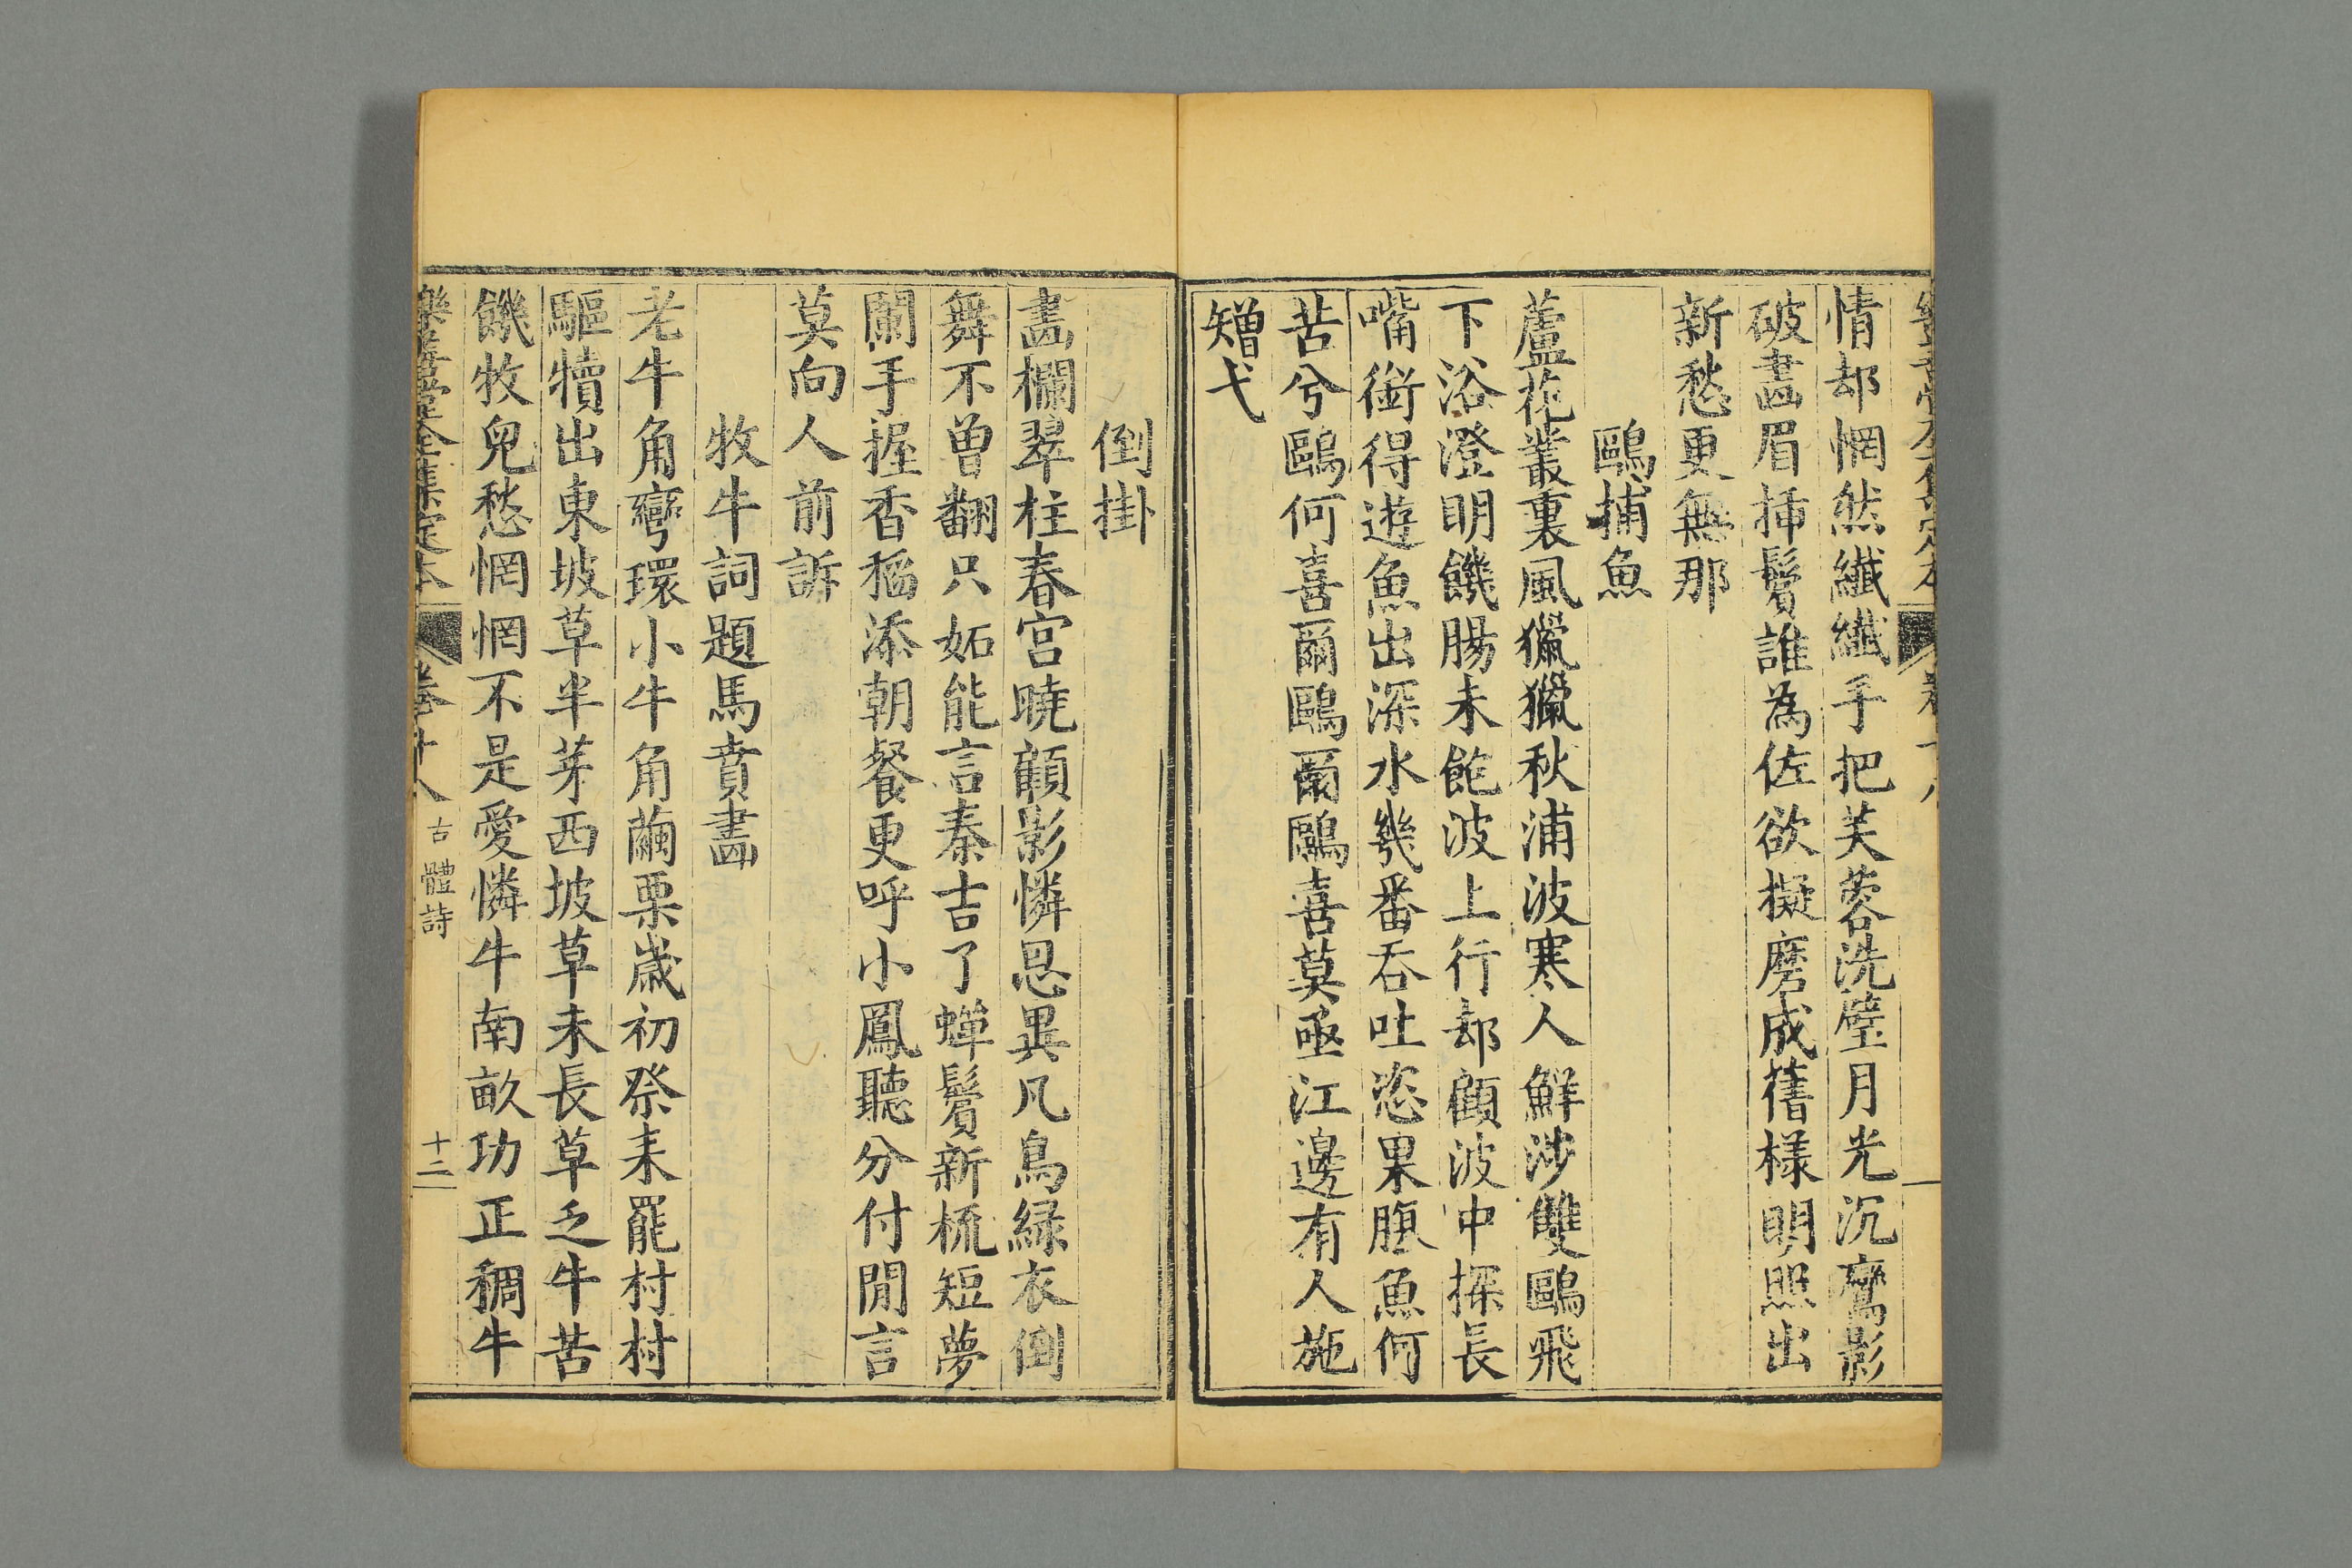 情却惘然纖纖手把芙蓉洗璧月光沉鸞影
破畵眉揷鬢誰為佐欲擬磨成舊樣明照出
新愁更無那
鷗捕魚
蘆花叢裏風獵獵秋浦波寒人鮮涉雙鷗飛
下浴澄明饑腸未飽波上行却顧波中探長
嘴銜得遊魚出深水幾番吞吐恣果腹魚何
苦兮鷗何喜爾鷗爾鷗喜莫亟江邊有人施
矰弋
倒掛
畵欄翠柱春宮曉顧影憐恩異凡鳥緑衣倒
舞不曾翻只妬能言秦吉了蟬鬢新梳短夢
闌手握香稻添朝餐更呼小鳳聽分付閒言
莫向人前訴
牧牛詞題馬賁畵
老牛角彎環小牛角繭栗歲初祭耒罷村村
驅犢出東坡草半芽西坡草未長草乏牛苦
饑牧兒愁惘惘不是愛憐牛南畝功正稠牛
樂善堂全集定本 卷十八 古體詩 十二